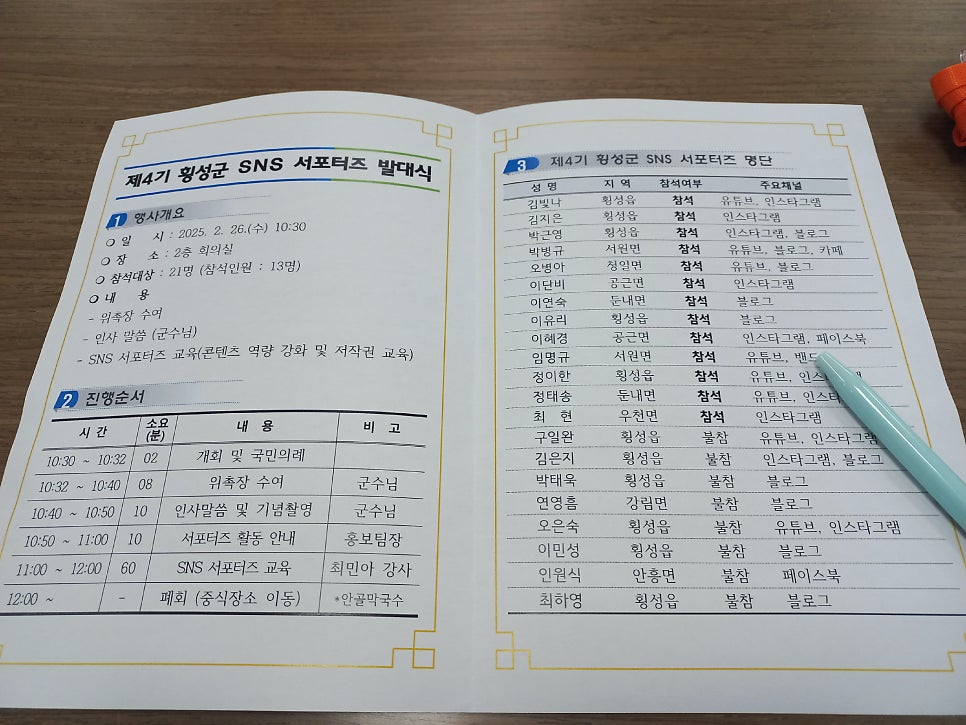 제4기 횡성군 SNS 서포터즈 발대식
1 행사개요
❍ 일 시 : 2025. 2. 26.(수) 10:30
❍ 장 소 : 2층 회의실
❍ 참석대상 : 21명 (참석인원 : 13명)
❍ 내 용
- 위촉장 수여
- 인사 말씀 (군수님)
- SNS 서포터즈 교육(콘텐츠 역량 강화 및 저작권 교육)
2 진행순서
시 간 소요(분) 내 용 비 고
10:30 ~ 10:32 02 개회 및 국민의례
10:32 ~ 10:40 08 위촉장 수여 군수님
10:40 ~ 10:50 10 인사말씀 및 기념촬영 군수님
10:50 ~ 11:00 10 서포터즈 활동 안내 홍보팀장
11:00 ~ 12:00 60 SNS 서포터즈 교육 최민아 강사
12:00 ~ - 폐회 (중식장소 이동) *안골막국수
3 제4기 횡성군 SNS 서포터즈 명단
성 명 지 역 참석여부 주요채널
김빛나 횡성읍 참석 유튜브, 인스타그램
김지은 횡성읍 참석 인스타그램
박근영 횡성읍 참석 인스타그램, 블로그
박병규 서원면 참석 유튜브, 블로그, 카페
오병아 청일면 참석 유튜브, 블로그
이단비 공근면 참석 인스타그램
이연숙 둔내면 참석 블로그
이유리 횡성읍 참석 블로그
이혜경 공근면 참석 인스타그램, 페이스북
임명규 서원면 참석 유튜브, 밴드
정이한 횡성읍 참석 유튜브,
정태송 둔내면 참석 유튜브,
최 현 우천면 참석 인스타그램
구일완 횡성읍 불참 유튜브, 인스타그램
김은지 횡성읍 불참 인스타그램, 블로그
박태욱 횡성읍 불참 블로그
연영흠 강림면 불참 블로그
오은숙 횡성읍 불참 유튜브, 인스타그램
이민성 횡성읍 불참 블로그
인원식 안흥면 불참 페이스북
최하영 횡성읍 불참 블로그